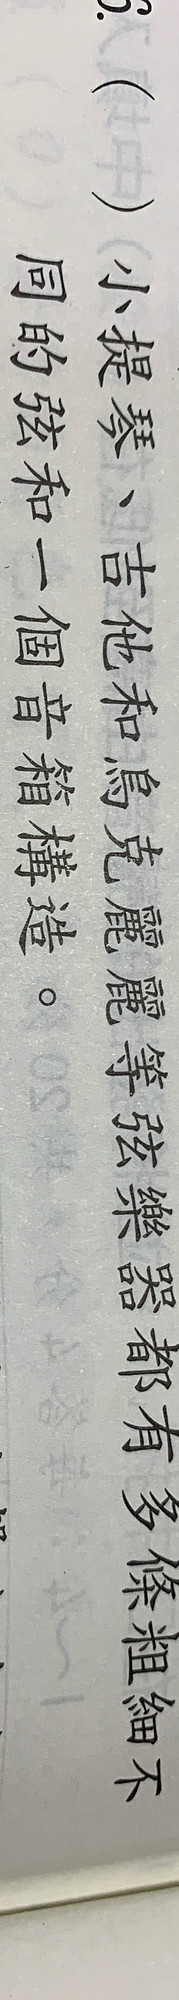 6. (　)小提琴、吉他和烏克麗麗等弦樂器都有多條粗細不
同的弦和一個音箱構造。